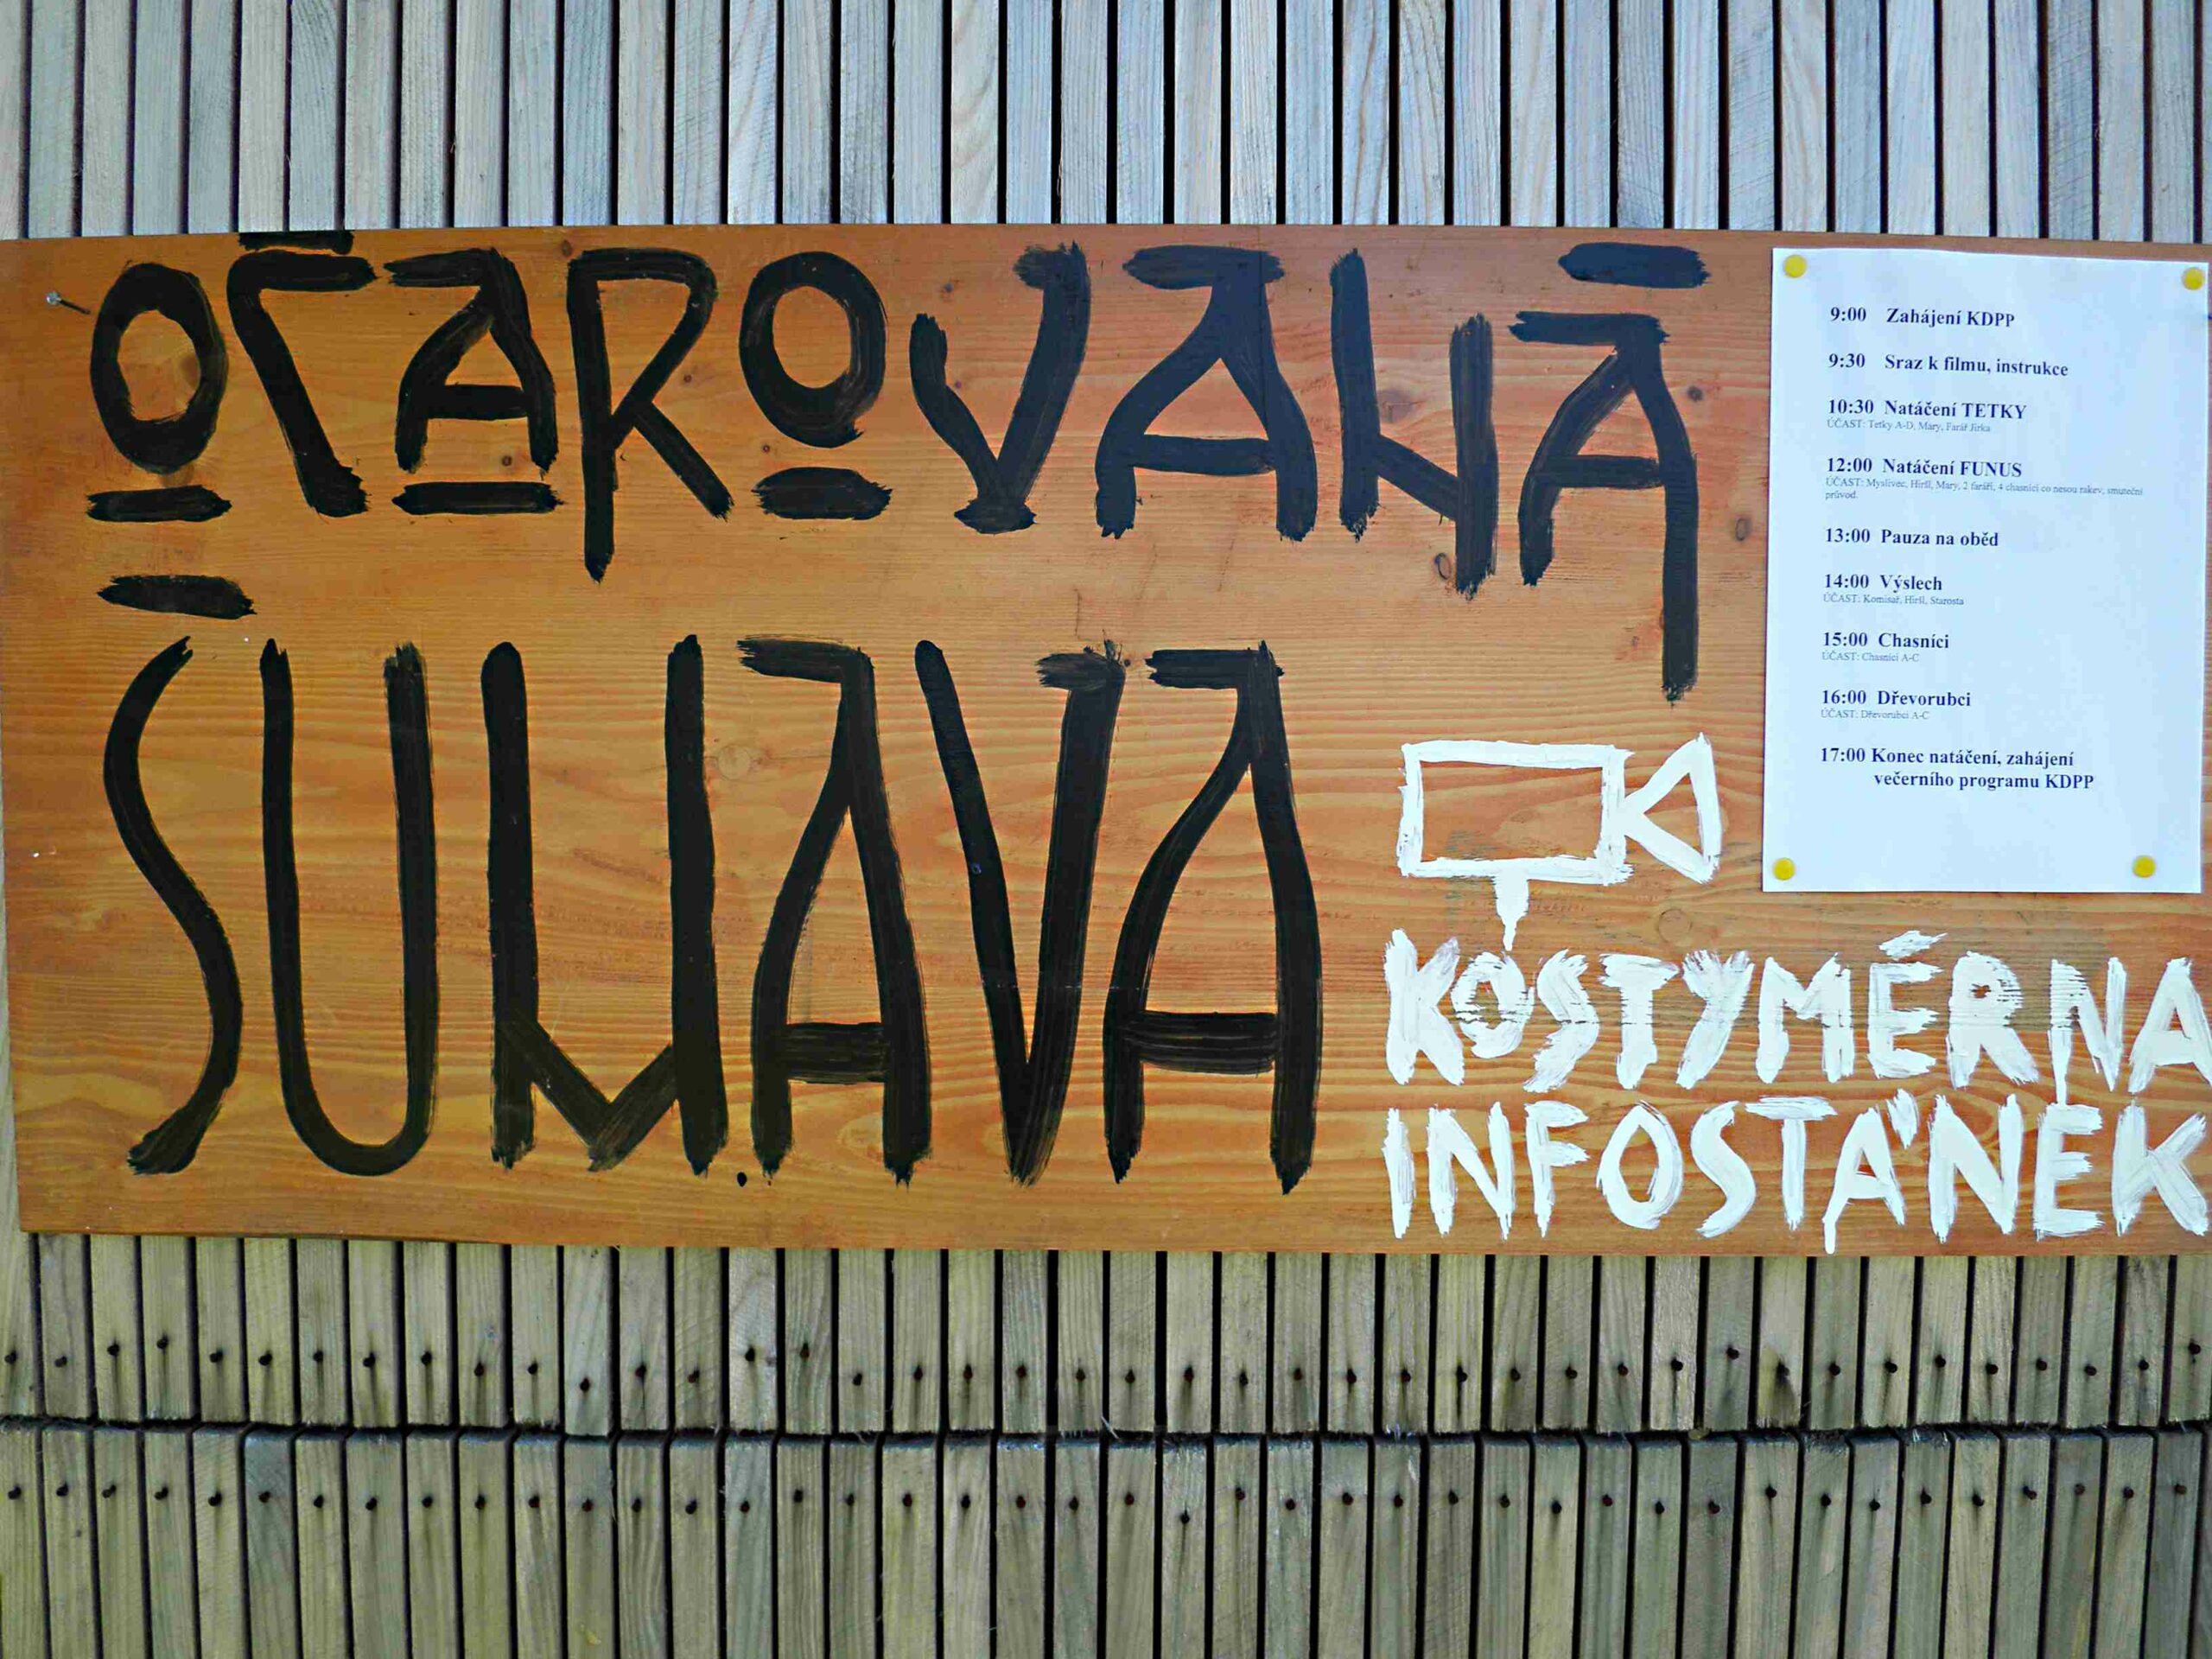 OČAROVANÁ
ŠUMAVA
KOSTYMÉRNA
INFOSTÁNEK
9:00 Zahájení KDPP
9:30 Sraz k filmu, instrukce
10:30 Natáčení TETKY
ÚČAST: Tetky A-D, Mary, Farář Jirka
12:00 Natáčení FUNUS
ÚČAST: Myslivec, Hiršl, Mary, 2 faráři, 4 chasníci co nesou rakev, smuteční
průvod.
13:00 Pauza na oběd
14:00 Výslech
ÚČAST: Komisař, Hiršl, Starosta
15:00 Chasníci
ÚČAST: Chasníci A-C
16:00 Dřevorubci
ÚČAST: Dřevorubci A-C
17:00 Konec natáčení, zahájení
večerního programu KDPP